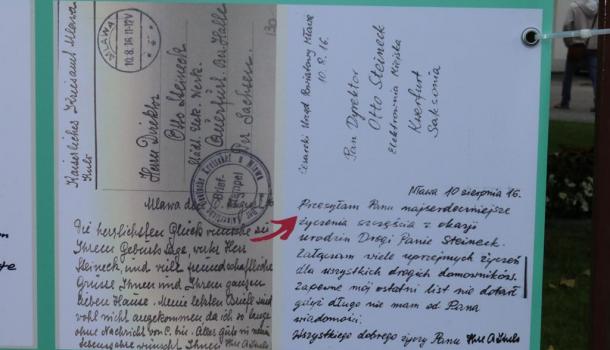 Kaiserliches Kreisamt Mlawa
MLAWA
10.8.16.11-12V
130
Herrn Direktor
Otto Steineck
Städt. Elek. Werk.
Querfurt. Bez. Halle
Prv Sachsen.
Brief-
stempel
Mlawa den
Die herzlichsten Glückwünsche zu
Ihrem Geburtstage, verter Herr
Steineck, und viele freundschaftliche
Grüsse Ihnen und Ihrem ganzen
lieben Hause. Meine letzten Briefe sind
wohl nicht angekommen da ich so lange
ohne Nachricht von
wünscht Ihnen
Cesarski Urząd Powiatowy Mława
10.8.16.
Pan Dyrektor
Otto Steineck
Elektrownia Miejska
Kwerfurt
Saksonia
Mława 10 sierpnia 16.
Przesyłam Panu najserdeczniejsze
życzenia szczęścia z okazji
urodzin Drogi Panie Steineck.
Załączam wiele uprzejmych życzeń
dla wszystkich drogich domowników.
Zapewne mój ostatni list nie dotarł
gdyż długo nie mam od Pana
wiadomości.
Wszystkiego dobrego życzy Panu